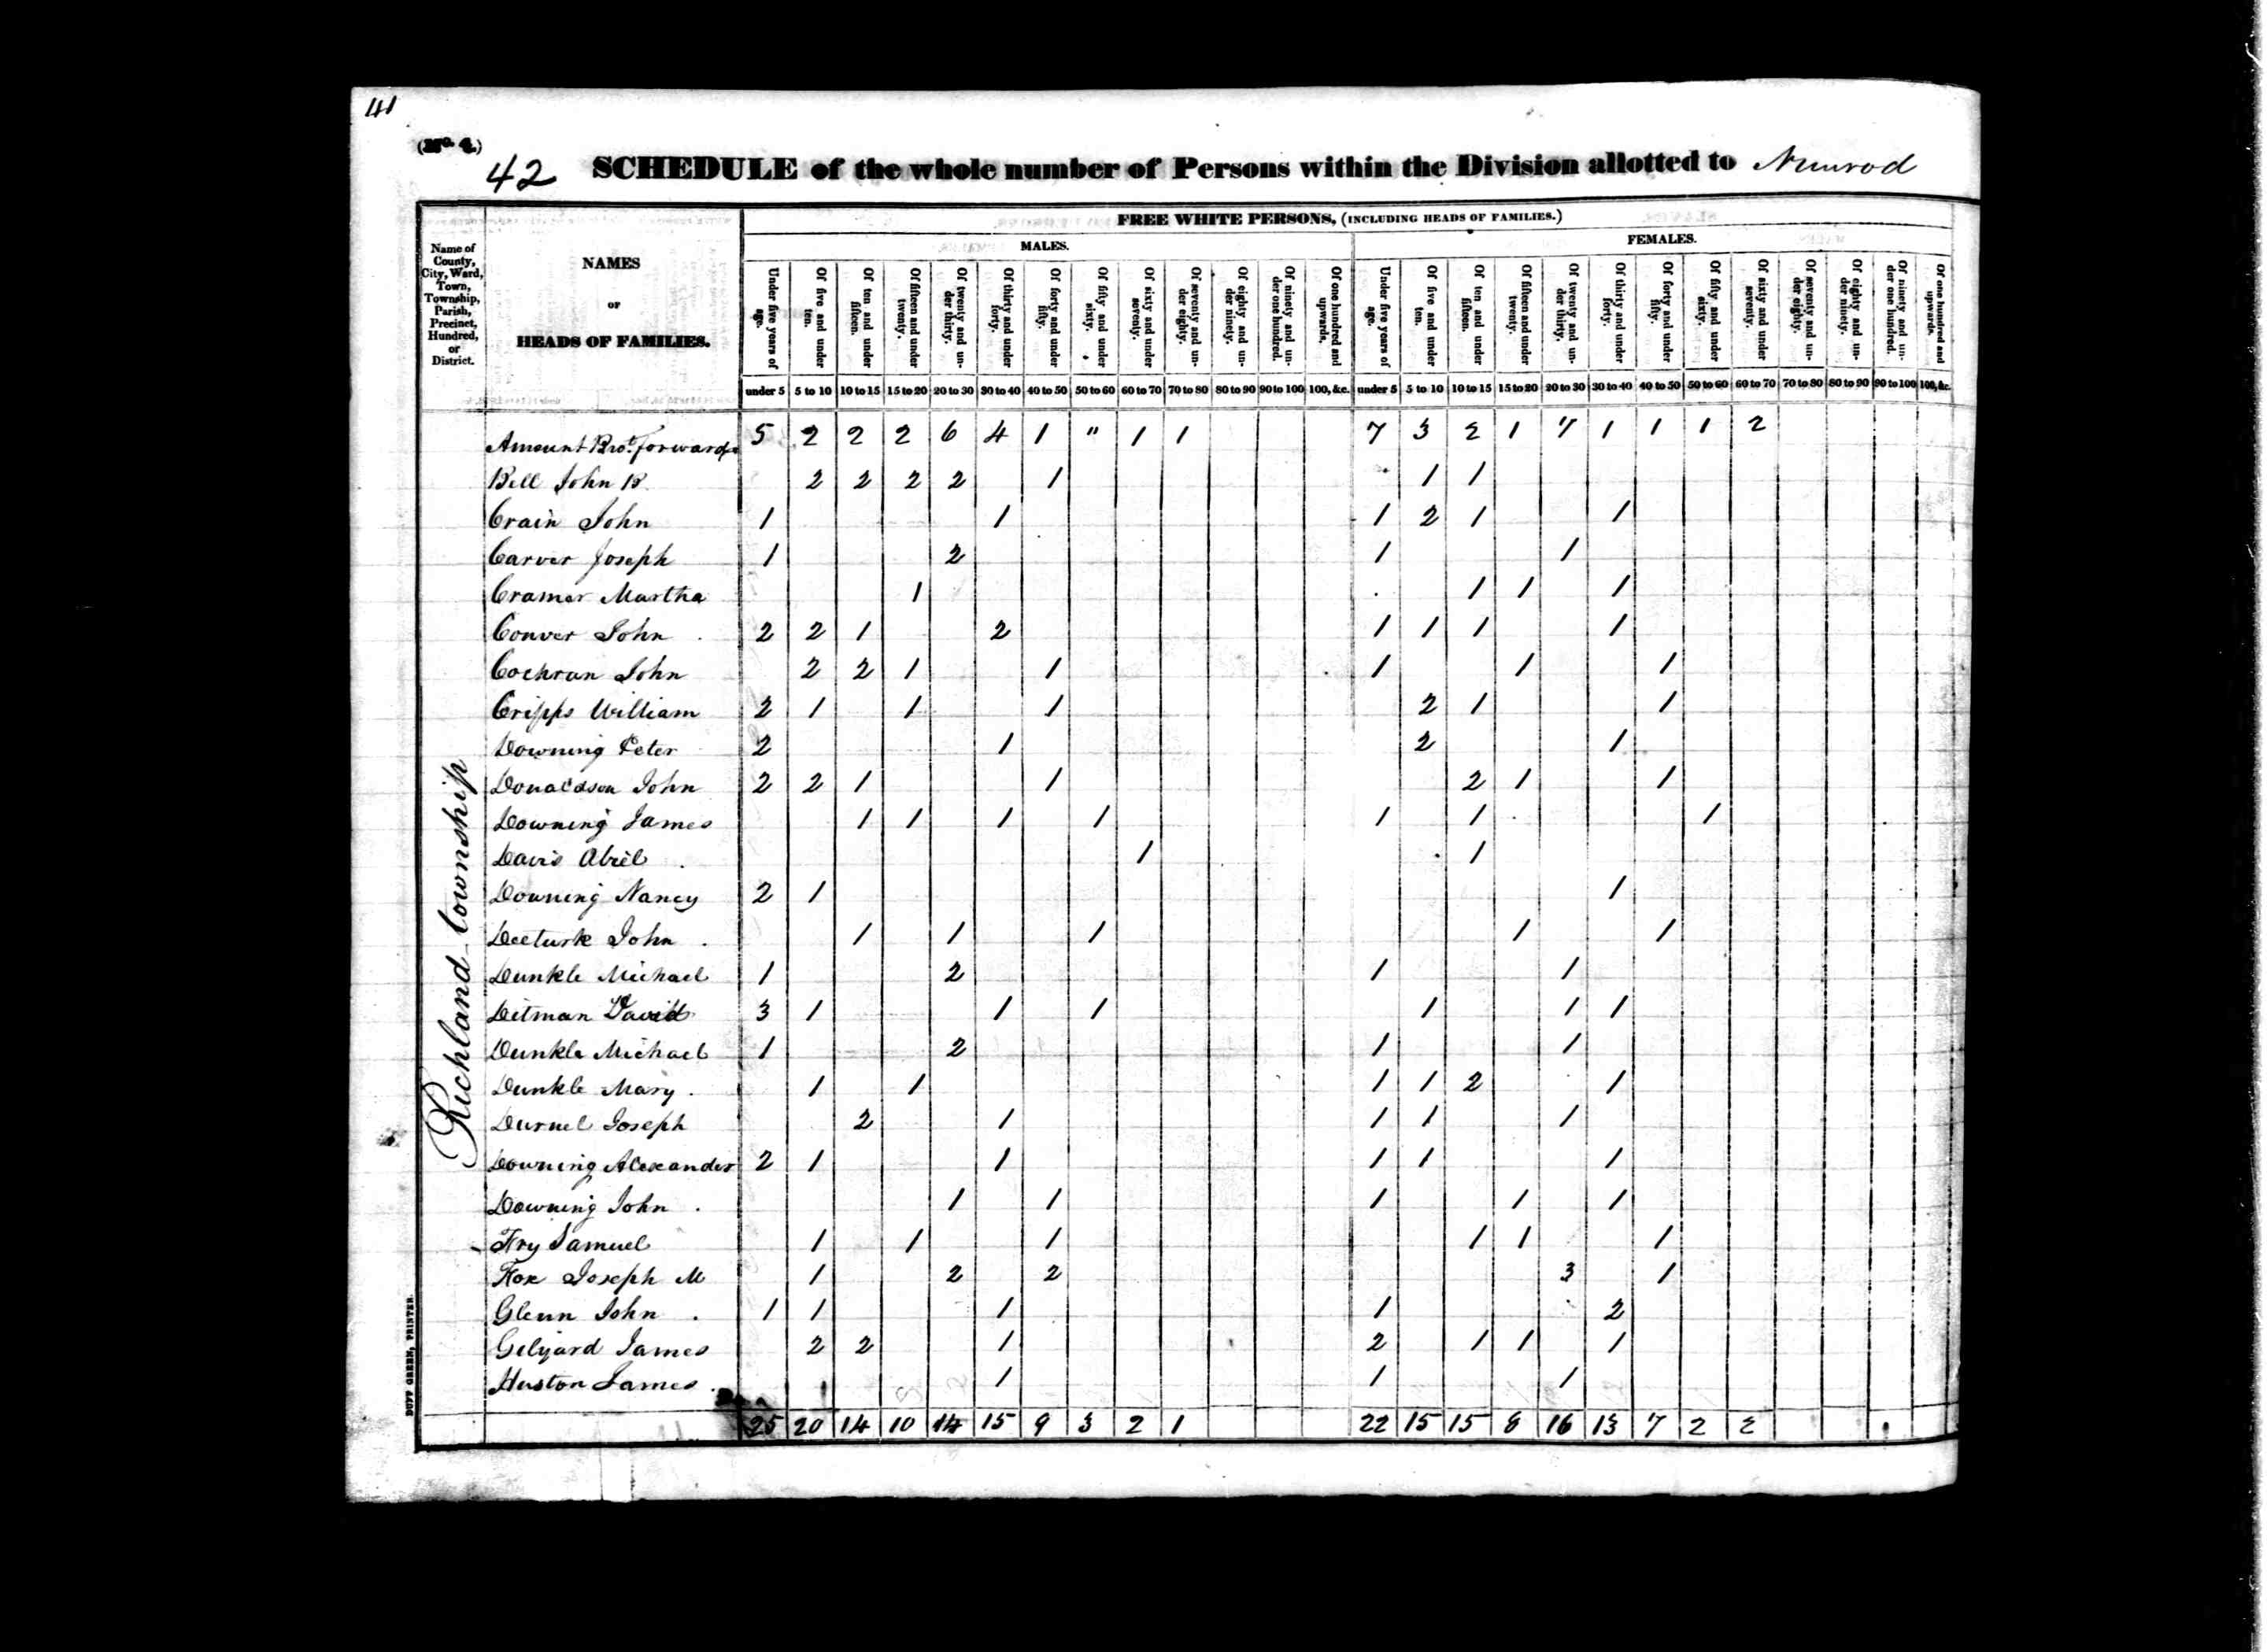 41
(No. 4.)
42 SCHEDULE of the whole number of Persons within the Division allotted to Nimrod
FREE WHITE PERSONS, (INCLUDING HEADS OF FAMILIES.)
MALES. FEMALES.
Name of County, City, Ward, Town, Township, Parish, Precinct, Hundred, or District.
NAMES
OF
HEADS OF FAMILIES.
Under five years of age.
Of five and under ten.
Of ten and under fifteen.
Of fifteen and under twenty.
Of twenty and under thirty.
Of thirty and under forty.
Of forty and under fifty.
Of fifty and under sixty.
Of sixty and under seventy.
Of seventy and under eighty.
Of eighty and under ninety.
Of ninety and under one hundred.
Of one hundred and upwards.
Under five years of age.
Of five and under ten.
Of ten and under fifteen.
Of fifteen and under twenty.
Of twenty and under thirty.
Of thirty and under forty.
Of forty and under fifty.
Of fifty and under sixty.
Of sixty and under seventy.
Of seventy and under eighty.
Of eighty and under ninety.
Of ninety and under one hundred.
Of one hundred and upwards.
under 5 5 to 10 10 to 15 15 to 20 20 to 30 30 to 40 40 to 50 50 to 60 60 to 70 70 to 80 80 to 90 90 to 100 100, &c. under 5 5 to 10 10 to 15 15 to 20 20 to 30 30 to 40 40 to 50 50 to 60 60 to 70 70 to 80 80 to 90 90 to 100 100, &c.
Amount Brot. forward 5 2 2 2 6 4 1 " 1 1 7 3 2 1 7 1 1 1 2
Bell John B. 2 2 2 2 1 1 1
Crain John 1 1 1 2 1 1
Carver Joseph 1 2 1 1
Cramer Martha 1 1 1 1
Conver John 2 2 1 2 1 1 1 1
Cochran John 2 2 1 1 1 1 1
Cripps William 2 1 1 1 2 1 1
Downing Peter 2 1 2 1
Donaldson John 2 2 1 1 2 1 1
Downing James 1 1 1 1 1 1 1
Davis Abiel 1 1
Downing Nancy 2 1 1
Deeturk John 1 1 1 1 1
Dunkle Michael 1 2 1 1
Ditman David 3 1 1 1 1 1 1
Dunkle Michael 1 2 1 1
Dunkle Mary 1 1 1 1 2 1
Durnel Joseph 2 1 1 1 1
Downing Alexander 2 1 1 1 1 1
Downing John 1 1 1 1 1
Fry Samuel 1 1 1 1 1 1
Fox Joseph M 1 2 2 3 1
Glenn John 1 1 1 1 2
Gilyard James 2 2 1 2 1 1 1
Huston James 1 1 1
25 20 14 10 14 15 9 3 2 1 22 15 15 8 16 13 7 2 2
Richland Township
DUFF GREEN, PRINTER.